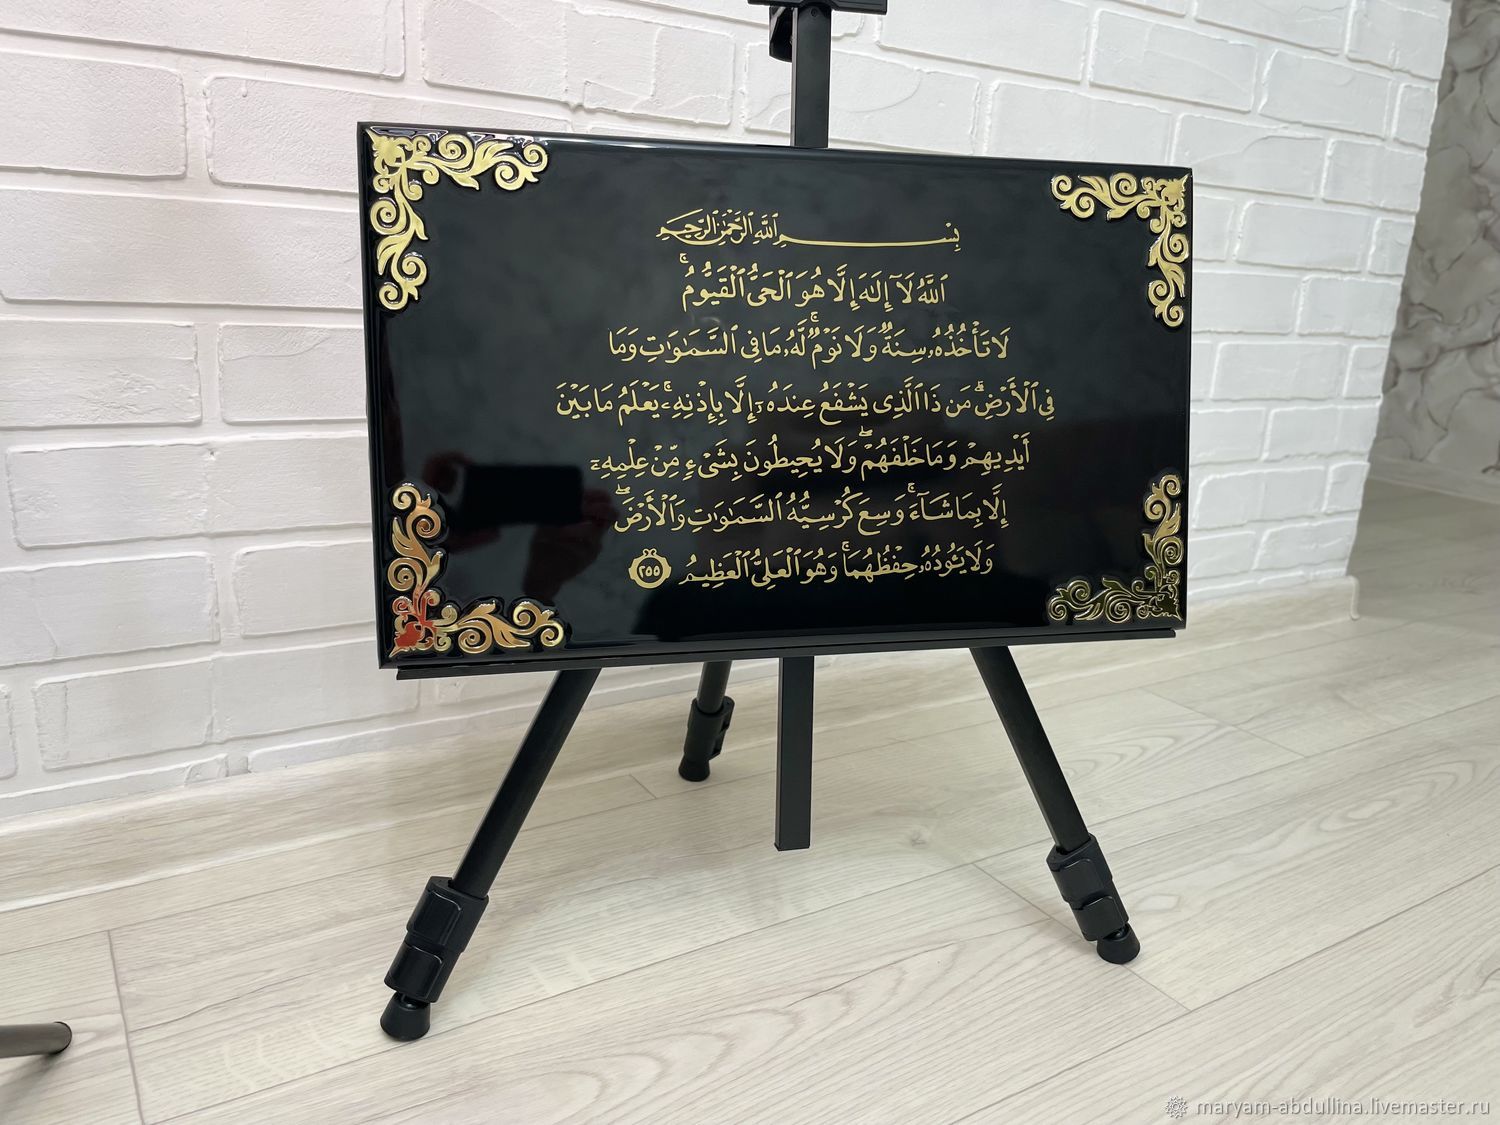 بِسْمِ ٱللَّهِ ٱلرَّحْمَٰنِ ٱلرَّحِيمِ
ٱللَّهُ لَآ إِلَٰهَ إِلَّا هُوَ ٱلْحَىُّ ٱلْقَيُّومُ ۚ
لَا تَأْخُذُهُۥ سِنَةٌ وَلَا نَوْمٌ ۚ لَّهُۥ مَا فِى ٱلسَّمَٰوَٰتِ وَمَا
فِى ٱلْأَرْضِ ۗ مَن ذَا ٱلَّذِى يَشْفَعُ عِندَهُۥٓ إِلَّا بِإِذْنِهِۦ ۚ يَعْلَمُ مَا بَيْنَ
أَيْدِيهِمْ وَمَا خَلْفَهُمْ ۖ وَلَا يُحِيطُونَ بِشَىْءٍ مِّنْ عِلْمِهِۦٓ
إِلَّا بِمَا شَآءَ ۚ وَسِعَ كُرْسِيُّهُ ٱلسَّمَٰوَٰتِ وَٱلْأَرْضَ ۖ
وَلَا يَـُٔودُهُۥ حِفْظُهُمَا ۚ وَهُوَ ٱلْعَلِىُّ ٱلْعَظِيمُ ٢٥٥
maryam-abdullina.livemaster.ru